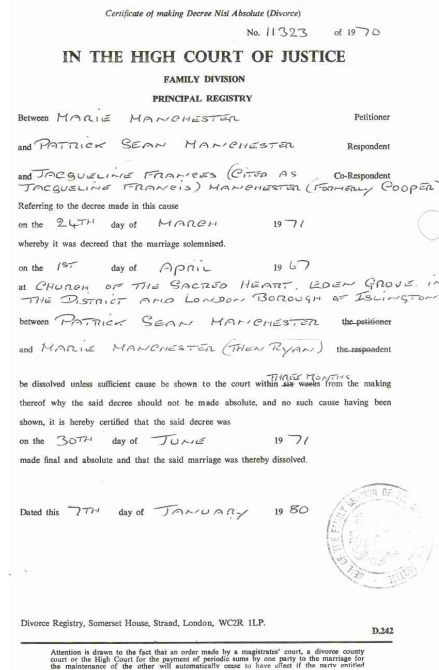 Certificate of making Decree Nisi Absolute (Divorce)
No. 11323 of 1970
IN THE HIGH COURT OF JUSTICE
FAMILY DIVISION
PRINCIPAL REGISTRY
Between MARIE MANCHESTER Petitioner
and PATRICK SEAN MANCHESTER Respondent
and JACQUELINE FRANCES (CITED AS Co-Respondent
JACQUELINE FRANCIS) MANCHESTER (FORMERLY COOPER)
Referring to the decree made in this cause
on the 24TH day of MARCH 1971
whereby it was decreed that the marriage solemnised.
on the 1ST day of APRIL 1967
at CHURCH OF THE SACRED HEART, EDEN GROVE. IN
THE DISTRICT AND LONDON BOROUGH OF ISLINGTON
between PATRICK SEAN MANCHESTER the petitioner
and MARIE MANCHESTER (THEN RYAN) the respondent
THREE MONTHS
be dissolved unless sufficient cause be shown to the court within six weeks from the making
thereof why the said decree should not be made absolute, and no such cause having been
shown, it is hereby certified that the said decree was
on the 30TH day of JUNE 1971
made final and absolute and that the said marriage was thereby dissolved.
Dated this 7TH day of JANUARY 1980
Divorce Registry, Somerset House, Strand, London, WC2R 1LP.
D.242
Attention is drawn to the fact that an order made by a magistrates' court, a divorce county
court or the High Court for the payment of periodic sums by one party to the marriage for
the maintenance of the other will automatically cease to have effect if the party entitled